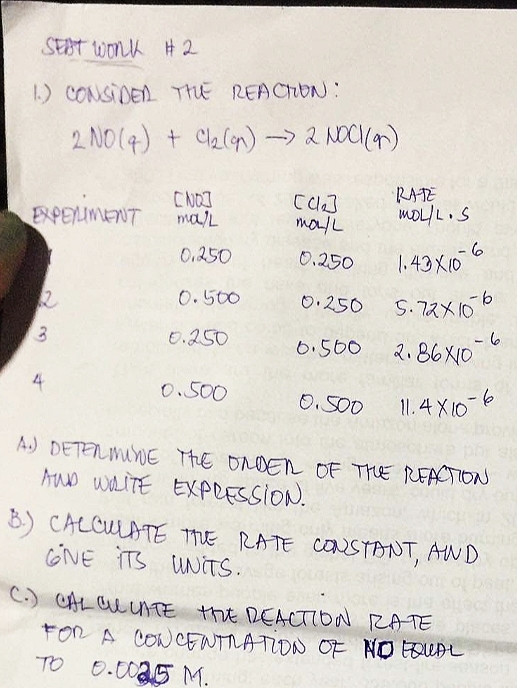 SEAT WORK #2
1.) CONSIDER THE REACTION:
2 NO(g) + Cl2(g) → 2 NOCl(g)
EXPERIMENT [NO] mol/L [Cl2] mol/L RATE MOL/L.S
0.250 0.250 1.43X10^-6
2 0.500 0.250 5.72X10^-6
3 0.250 0.500 2.86X10^-6
4 0.500 0.500 11.4X10^-6
A.) DETERMINE THE ORDER OF THE REACTION
AND WRITE EXPRESSION.
B.) CALCULATE THE RATE CONSTANT, AND
GIVE ITS UNITS.
C.) CALCULATE THE REACTION RATE
FOR A CONCENTRATION OF NO EQUAL
TO 0.0025 M.